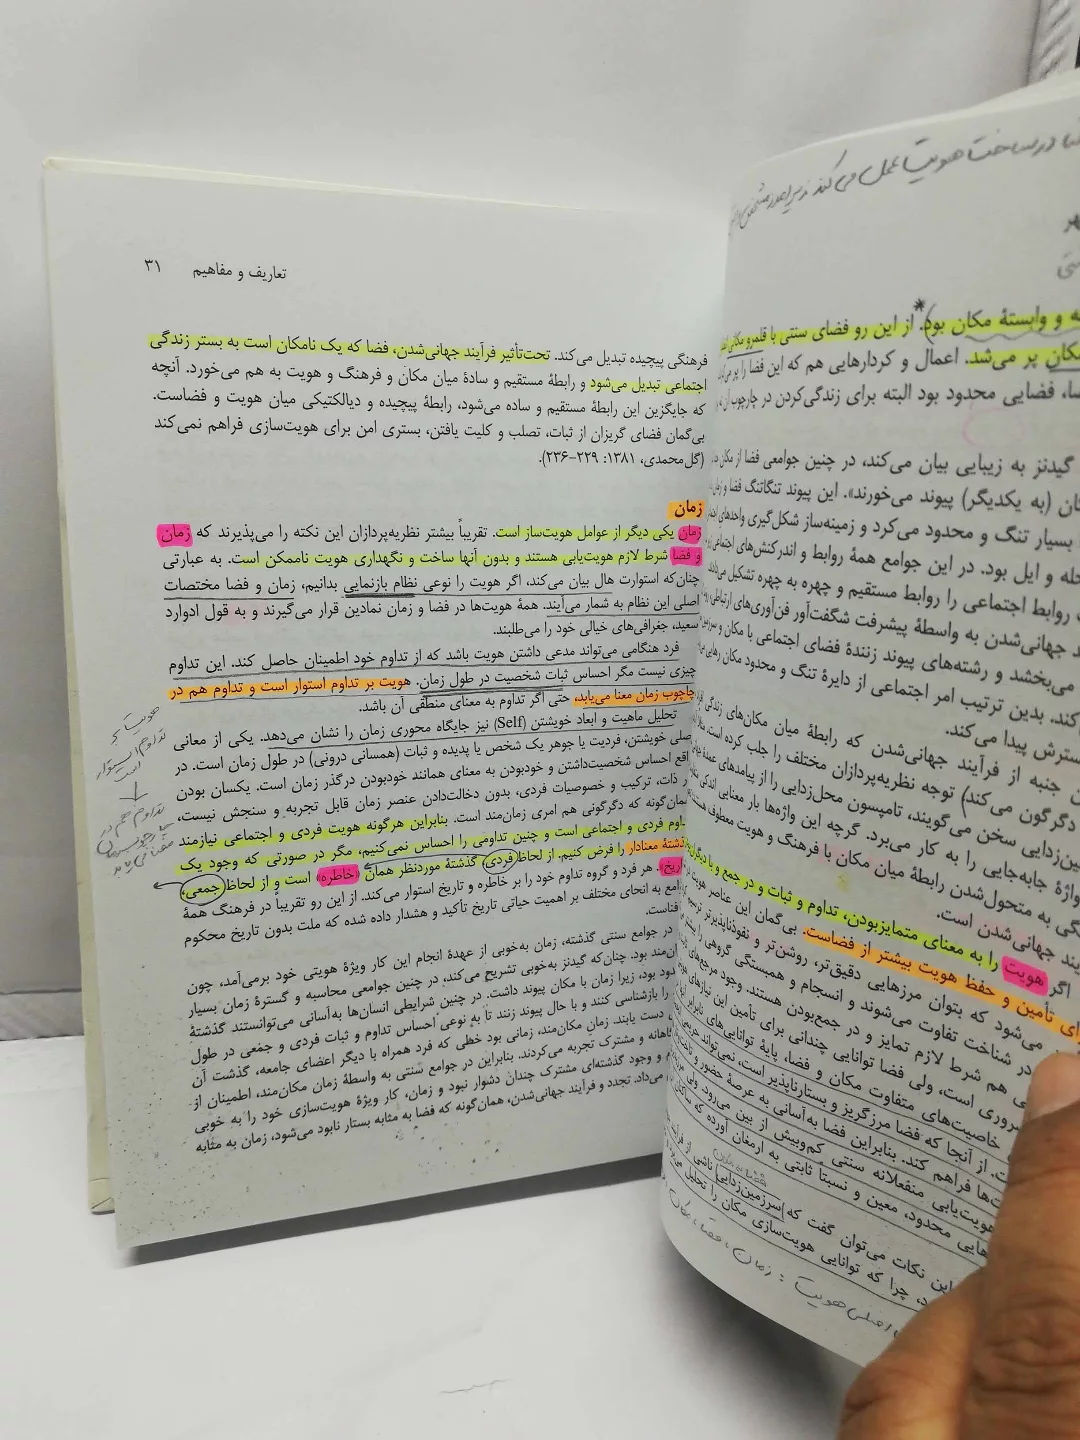 تعاریف و مفاهیم ۳۱
فرهنگی پیچیده تبدیل می‌کند. تحت‌تأثیر فرآیند جهانی‌شدن، فضا که یک نامکان است به بستر زندگی
اجتماعی تبدیل می‌شود و رابطهٔ مستقیم و سادهٔ میان مکان و فرهنگ و هویت به هم می‌خورد. آنچه
که جایگزین این رابطهٔ مستقیم و ساده می‌شود، رابطهٔ پیچیده و دیالکتیکی میان هویت و فضاست.
بی‌گمان فضای گریزان از ثبات، تصلب و کلیت یافتن، بستری امن برای هویت‌سازی فراهم نمی‌کند
(گل‌محمدی، ۱۳۸۱: ۲۲۹–۲۳۶).
زمان
زمان یکی دیگر از عوامل هویت‌ساز است. تقریباً بیشتر نظریه‌پردازان این نکته را می‌پذیرند که زمان
و فضا شرط لازم هویت‌یابی هستند و بدون آنها ساخت و نگهداری هویت ناممکن است. به عبارتی
چنان‌که استوارت هال بیان می‌کند، اگر هویت را نوعی نظام بازنمایی بدانیم، زمان و فضا مختصات
اصلی این نظام به شمار می‌آیند. همهٔ هویت‌ها در فضا و زمان نمادین قرار می‌گیرند و به قول ادوارد
سعید، جغرافی‌های خیالی خود را می‌طلبند.
فرد هنگامی می‌تواند مدعی داشتن هویت باشد که از تداوم خود اطمینان حاصل کند. این تداوم
چیزی نیست مگر احساس ثبات شخصیت در طول زمان. هویت بر تداوم استوار است و تداوم هم در
چاچوب زمان معنا می‌یابد، حتی اگر تداوم به معنای منطقی آن باشد.
تحلیل ماهیت و ابعاد خویشتن (Self) نیز جایگاه محوری زمان را نشان می‌دهد. یکی از معانی
اصلی خویشتن، فردیت یا جوهر یک شخص یا پدیده و ثبات (همسانی درونی) در طول زمان است. در
واقع احساس شخصیت‌داشتن و خودبودن به معنای همانند خودبودن درگذر زمان است. یکسان بودن
ذات، ترکیب و خصوصیات فردی، بدون دخالت‌دادن عنصر زمان قابل تجربه و سنجش نیست،
همان‌گونه که دگرگونی هم امری زمان‌مند است. بنابراین هرگونه هویت فردی و اجتماعی نیازمند
تداوم فردی و اجتماعی است و چنین تداومی را احساس نمی‌کنیم، مگر در صورتی که وجود یک
گذشتهٔ معنادار را فرض کنیم. از لحاظ (فردی) گذشتهٔ موردنظر همان «خاطره» است و از لحاظ (جمعی)،
تاریخ. هر فرد و گروه تداوم خود را بر خاطره و تاریخ استوار می‌کند. از این رو تقریباً در فرهنگ همهٔ
جوامع به انحای مختلف بر اهمیت حیاتی تاریخ تأکید و هشدار داده شده که ملت بدون تاریخ محکوم
به فناست.
در جوامع سنتی گذشته، زمان به‌خوبی از عهدهٔ انجام این کار ویژهٔ هویتی خود برمی‌آمد، چون
مکان‌مند بود. چنان‌که گیدنز به‌خوبی تشریح می‌کند، در چنین جوامعی محاسبه و گسترهٔ زمان بسیار
بود، زیرا زمان با مکان پیوند داشت. در چنین شرایطی انسان‌ها به‌آسانی می‌توانستند گذشتهٔ
را بازشناسی کنند و با حال پیوند زنند تا به نوعی احساس تداوم و ثبات فردی و جمعی در طول
دست یابند. زمانِ مکان‌مند، زمانی بود خطی که فرد همراه با دیگر اعضای جامعه، گذشت آن
و مشترک تجربه می‌کردند. بنابراین در جوامع سنتی به واسطهٔ زمان مکان‌مند، اطمینان از
و وجود گذشته‌ای مشترک چندان دشوار نبود و زمان، کار ویژهٔ هویت‌سازی خود را به خوبی
می‌داد. تجدد و فرآیند جهانی‌شدن، همان‌گونه که فضا به مثابه بستار نابود می‌شود، زمان به مثابه
هویت بر
تداوم استوار
است
تداوم هم در
در ساخت هویت عمل می‌کند
و وابستهٔ مکان بود). از این رو فضای سنتی با قلمرو مکانی
مکان پر می‌شد. اعمال و کردارهایی هم که این فضا را پر
فضایی محدود بود البته برای زندگی‌کردن در چارچوب آن
گیدنز به زیبایی بیان می‌کند، در چنین جوامعی فضا از مکان
(به یکدیگر) پیوند می‌خورند». این پیوند تنگاتنگ فضا و زمان
بسیار تنگ و محدود می‌کرد و زمینه‌ساز شکل‌گیری واحدهای
و ایل بود. در این جوامع همهٔ روابط و اندرکنش‌های اجتماعی
روابط اجتماعی را روابط مستقیم و چهره به چهره تشکیل می‌داد.
جهانی‌شدن به واسطهٔ پیشرفت شگفت‌آور فن‌آوری‌های ارتباطی
می‌بخشد و رشته‌های پیوند زنندهٔ فضای اجتماعی با مکان و سرزمین
کند. بدین ترتیب امر اجتماعی از دایرهٔ تنگ و محدود مکان رهایی
گسترش پیدا می‌کند.
جنبه از فرآیند جهانی‌شدن که رابطهٔ میان مکان‌های زندگی
دگرگون می‌کند) توجه نظریه‌پردازان مختلف را جلب کرده است.
سخن می‌گویند، تامپسون محل‌زدایی را از پیامدهای عمدهٔ
واژهٔ جابه‌جایی را به کار می‌برد. گرچه این واژه‌ها بار معنایی اندکی
به متحول‌شدن رابطهٔ میان مکان با فرهنگ و هویت معطوف هستند
جهانی‌شدن است.
اگر هویت را به معنای متمایزبودن، تداوم و ثبات و در جمع و با دیگران
تأمین و حفظ هویت بیشتر از فضاست. بی‌گمان این عناصر هویت
می‌شود که بتوان مرزهایی دقیق‌تر، روشن‌تر و نفوذناپذیرتر ترسیم
در شناخت تفاوت می‌شوند و انسجام و همبستگی گروهی را بیشتر
هم شرط لازم تمایز و در جمع‌بودن هستند. وجود مرجع‌های
است، ولی فضا توانایی چندانی برای تأمین این نیازهای
خاصیت‌های متفاوت مکان و فضا، پایهٔ توانایی‌های نابرابر
از آنجا که فضا مرزگریز و بستارناپذیر است، نمی‌تواند
فراهم کند. بنابراین فضا به‌آسانی به عرصهٔ حضور و
هویت‌یابی منفعلانه سنتی کم‌وبیش از بین می‌رود. ولی
محدود، معین و نسبتاً ثابتی به ارمغان آورده که
این نکات می‌توان گفت که (سرزمین‌زدایی) ناشی از
چرا که توانایی هویت‌سازی مکان را تحلیل
هویت : زمان، فضا، مکان